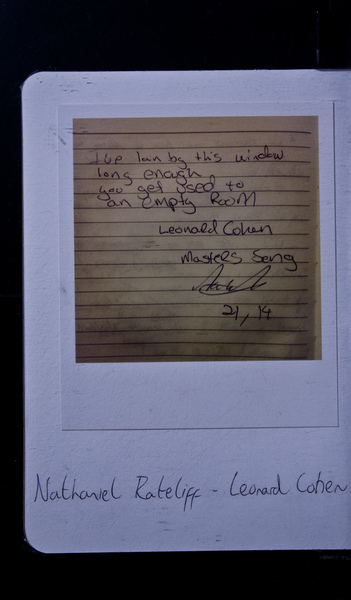 by this window
long enough,
you get used to
an empty room
Leonard Cohen
Masters Song
21, 14
Nathaniel Rateliff - Leonard Cohen